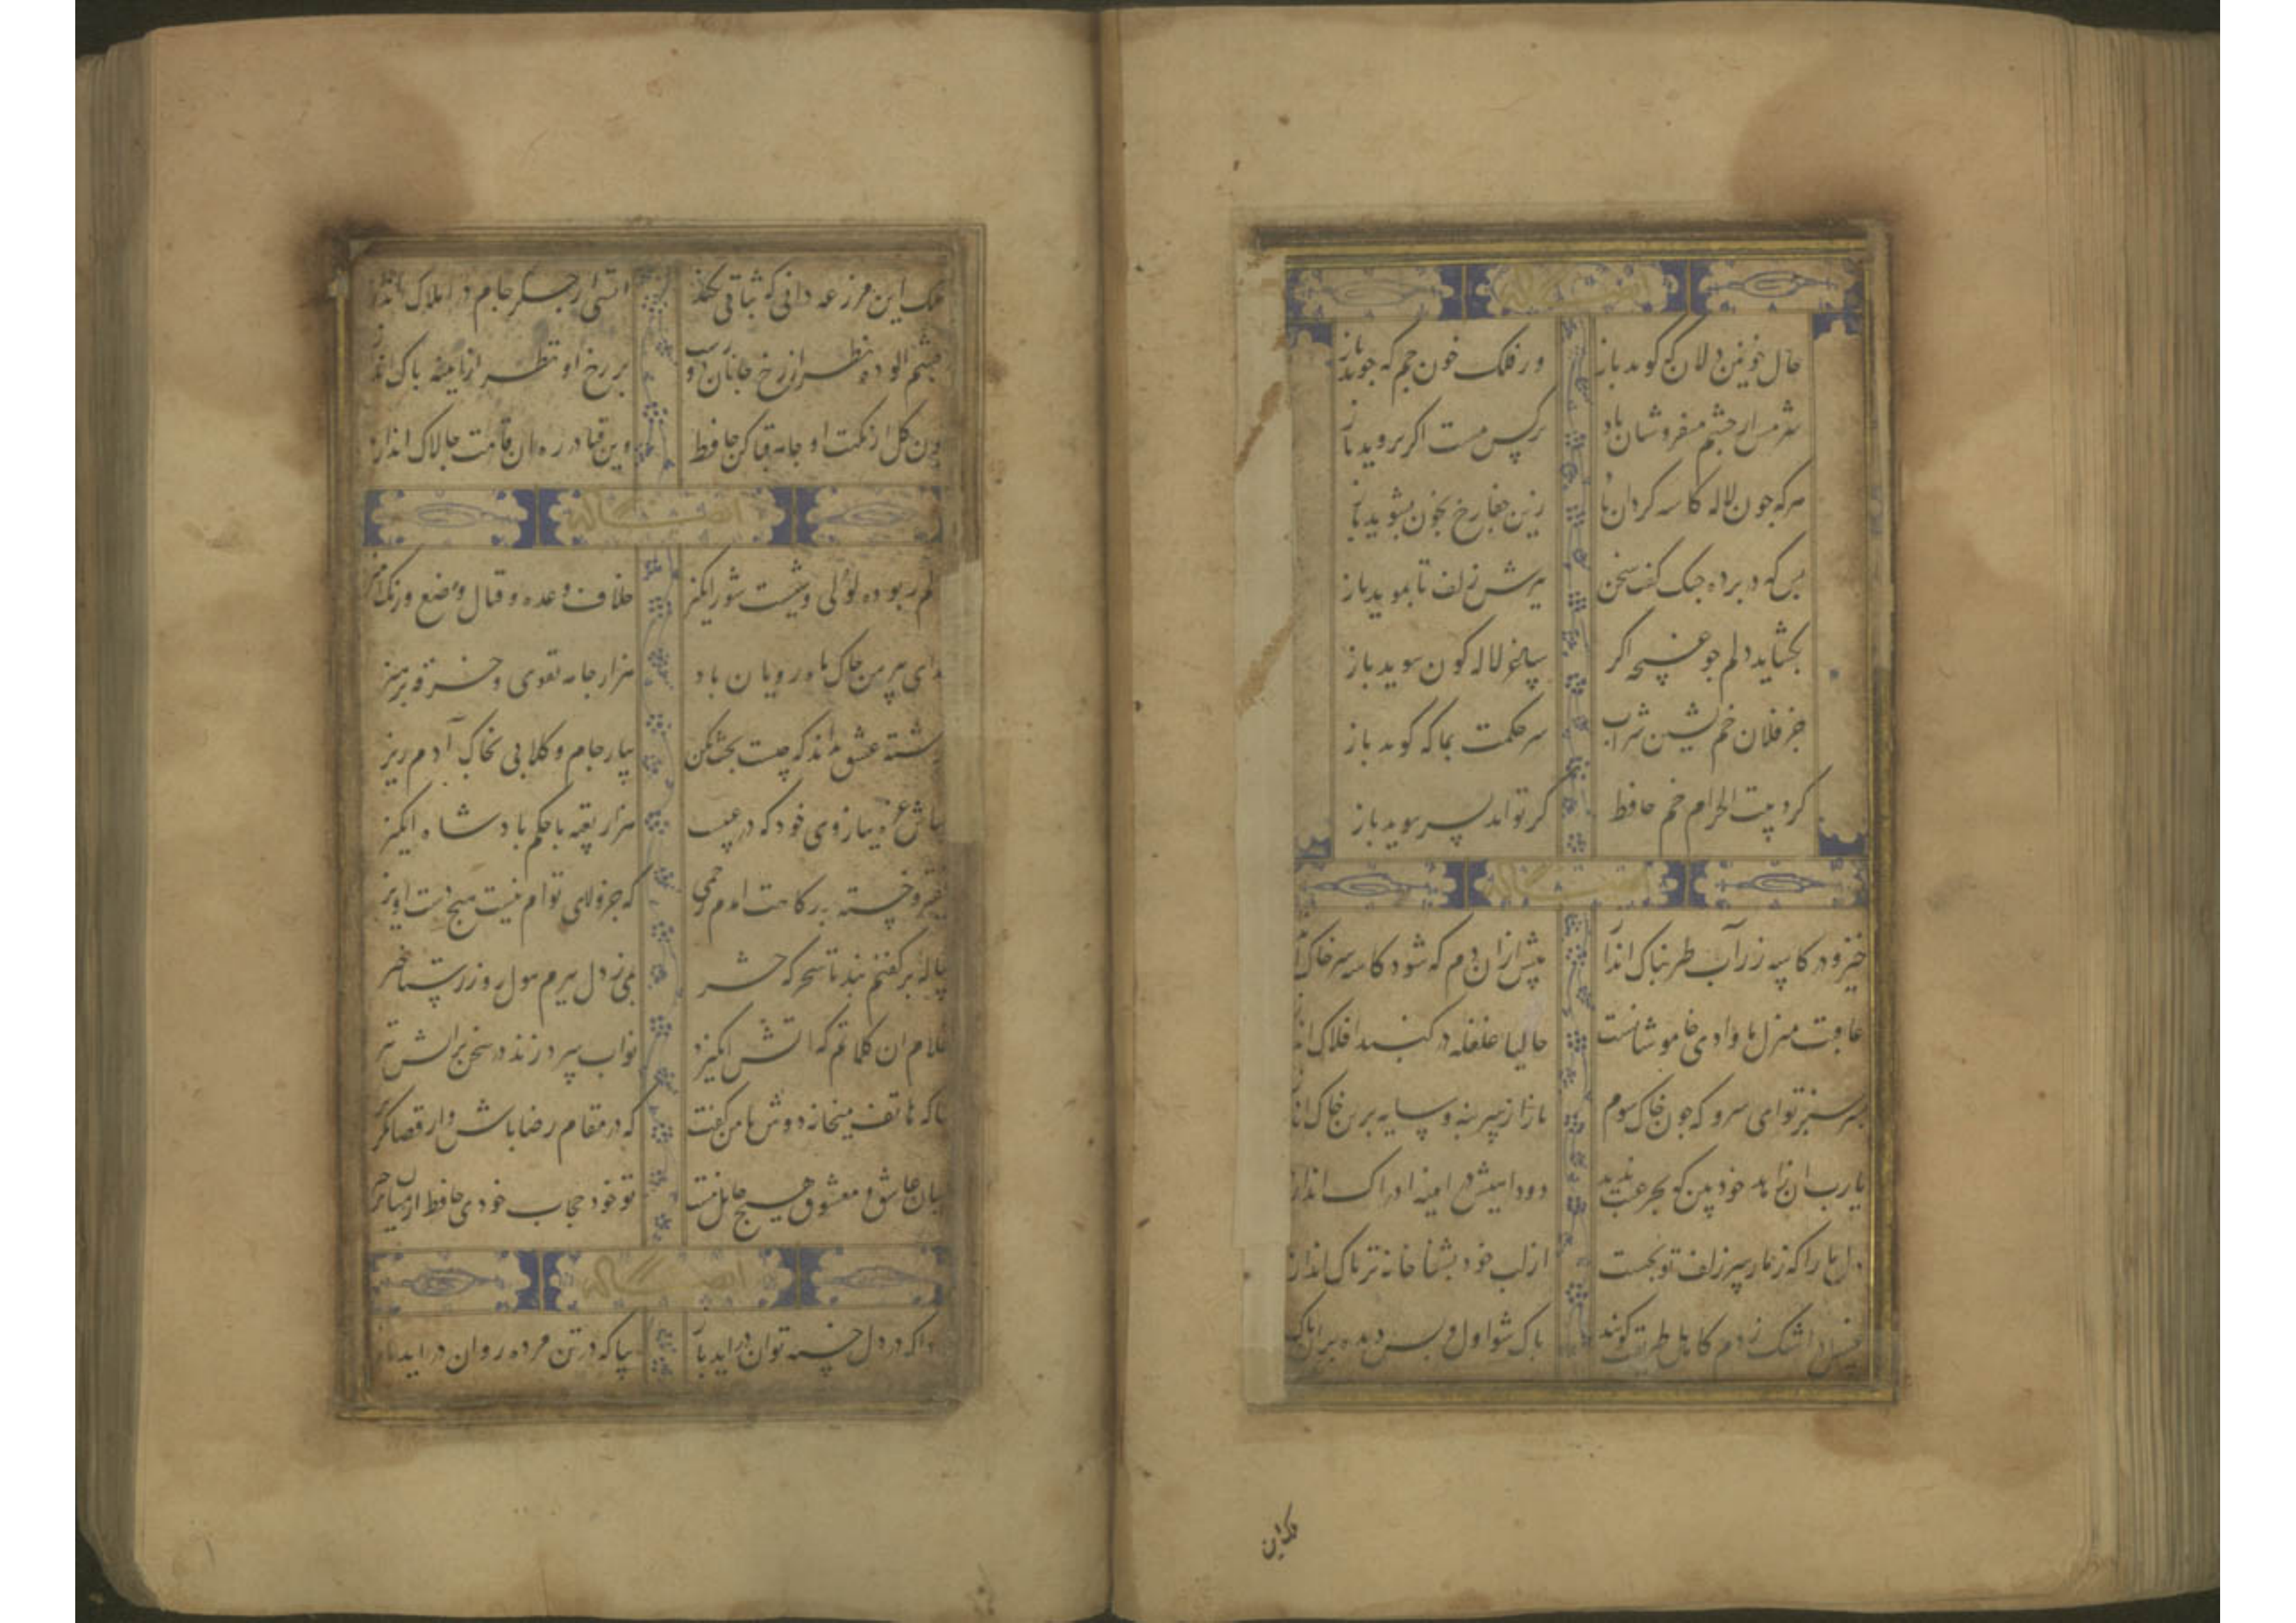 ایضا له
حال خونین دلان که کوید باز ور فلک خون جم که جوید باز
شرمش از چشم میفروشان باد نرکس مست اکر بروید باز
هرکه جون لاله کاسه کردان زین جفا رخ بخون بشوید باز
بس که در برده جنک کفت سخن ببرش زلف تا نموید باز
بکشاید دلم جو غنچه اکر ساغر لاله کون بوید باز
جز فلاطون خم نشین شراب سر حکمت بما که کوید باز
کرد بیت الحرام خم حافظ کر تواند بسر بپوید باز
ایضا له
خیز و در کاسه زر آب طربناک انداز بیش از ان دم که شود کاسه سر خاک
عاقبت منزل ما وادی خاموشانست حالیا غلغله در کنبد افلاک انداز
بسر سبز تو ای سرو که جون خاک شوم ناز از سر بنه و سایه برین خاک انداز
یارب ان زاهد خودبین که بجز عیب ندید دود اهیش در اینه ادراک انداز
دل ما را که ز مار سر زلف تو بخست از لب خود بشفا خانه تریاک انداز
غسل در اشک زدم کاهل طریقت کویند باک شو اول و بس دیده بران باک
ملک این
ملک این مزرعه دانی که ثباتی نکند اتشی از جکر جام در املاک انداز
چشم الوده نظر از رخ جانان دورست بر رخ او نظر از اینه باک انداز
چون کل از نکهت او جامه قبا کن حافظ وین قبا در ره ان قامت جالاک انداز
ایضا له
دلم ربوده لولی وشیست شورانکیز خلاف وعده و قتال وضع و رنک امیز
فدای پیرهن جاک ماه رویان باد هزار جامه تقوی و خرقه پرهیز
فرشته عشق نداند که چیست بحث مکن بیار جام و کلابی بخاک آدم ریز
مباش غره ببازوی خود که در خبرست هزار تعبیه با حکم بادشاه انکیز
فقیر و خسته بدرکاهت امدم رحمی که جز ولای توام نیست هیچ دست اویز
پیاله بر کفنم بند تا سحرکه حشر بمی ز دل ببرم هول روز رستاخیز
غلام ان کلماتم که اتش انکیزد نه آب سرد زند در سخن بر اتش تیز
بیا که هاتف میخانه دوش با من کفت که در مقام رضا باش و از قضا مکریز
میان عاشق و معشوق هیچ حایل نیست تو خود حجاب خودی حافظ از میان برخیز
ایضا له
درا که در دل خسته توان دراید باز بیا که در تن مرده روان دراید باز